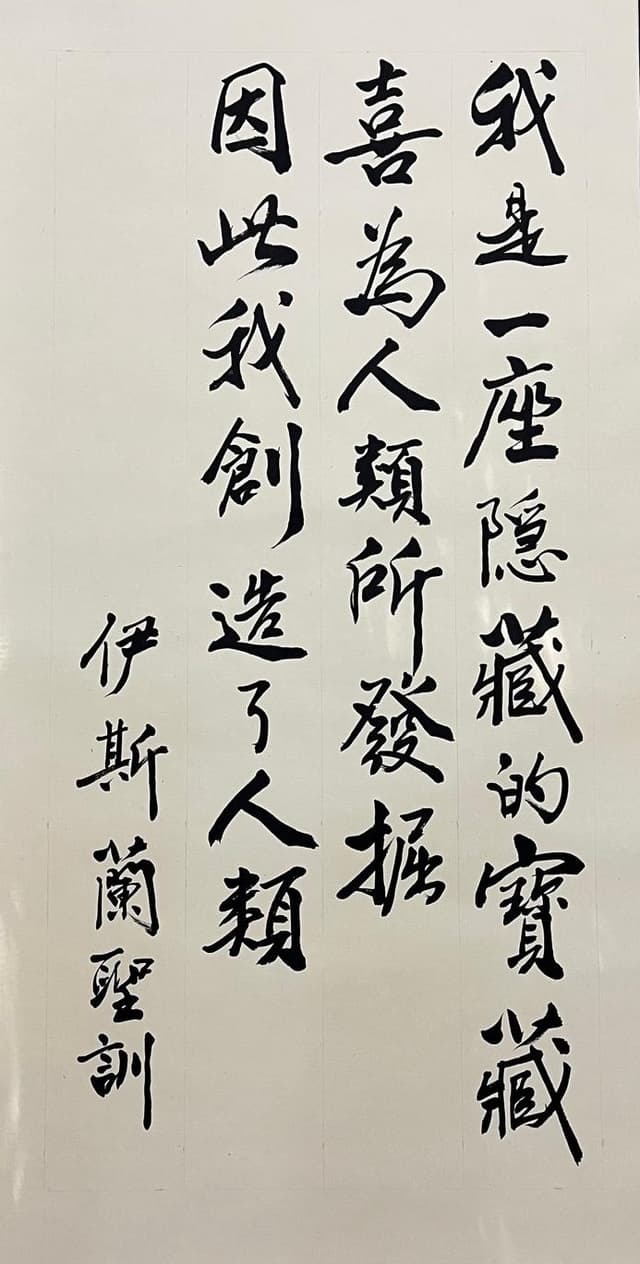 我是一座隱藏的寶藏
喜為人類所發掘
因此我創造了人類
伊斯蘭聖訓